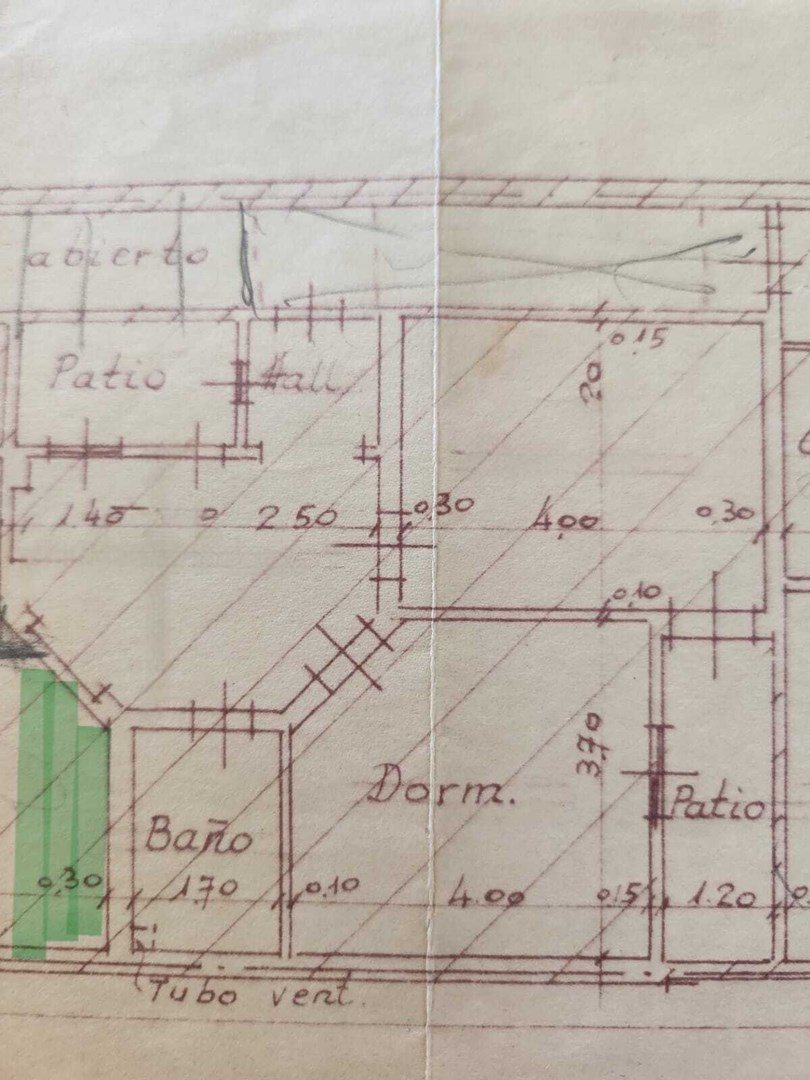 abierto
Patio
Hall
0.15
20
140
2 50
0.30
4.00
0.30
0.10
3.70
Dorm.
Patio
Baño
0.30
1.70
0.10
4.00
0.15
1.20
Tubo vent.